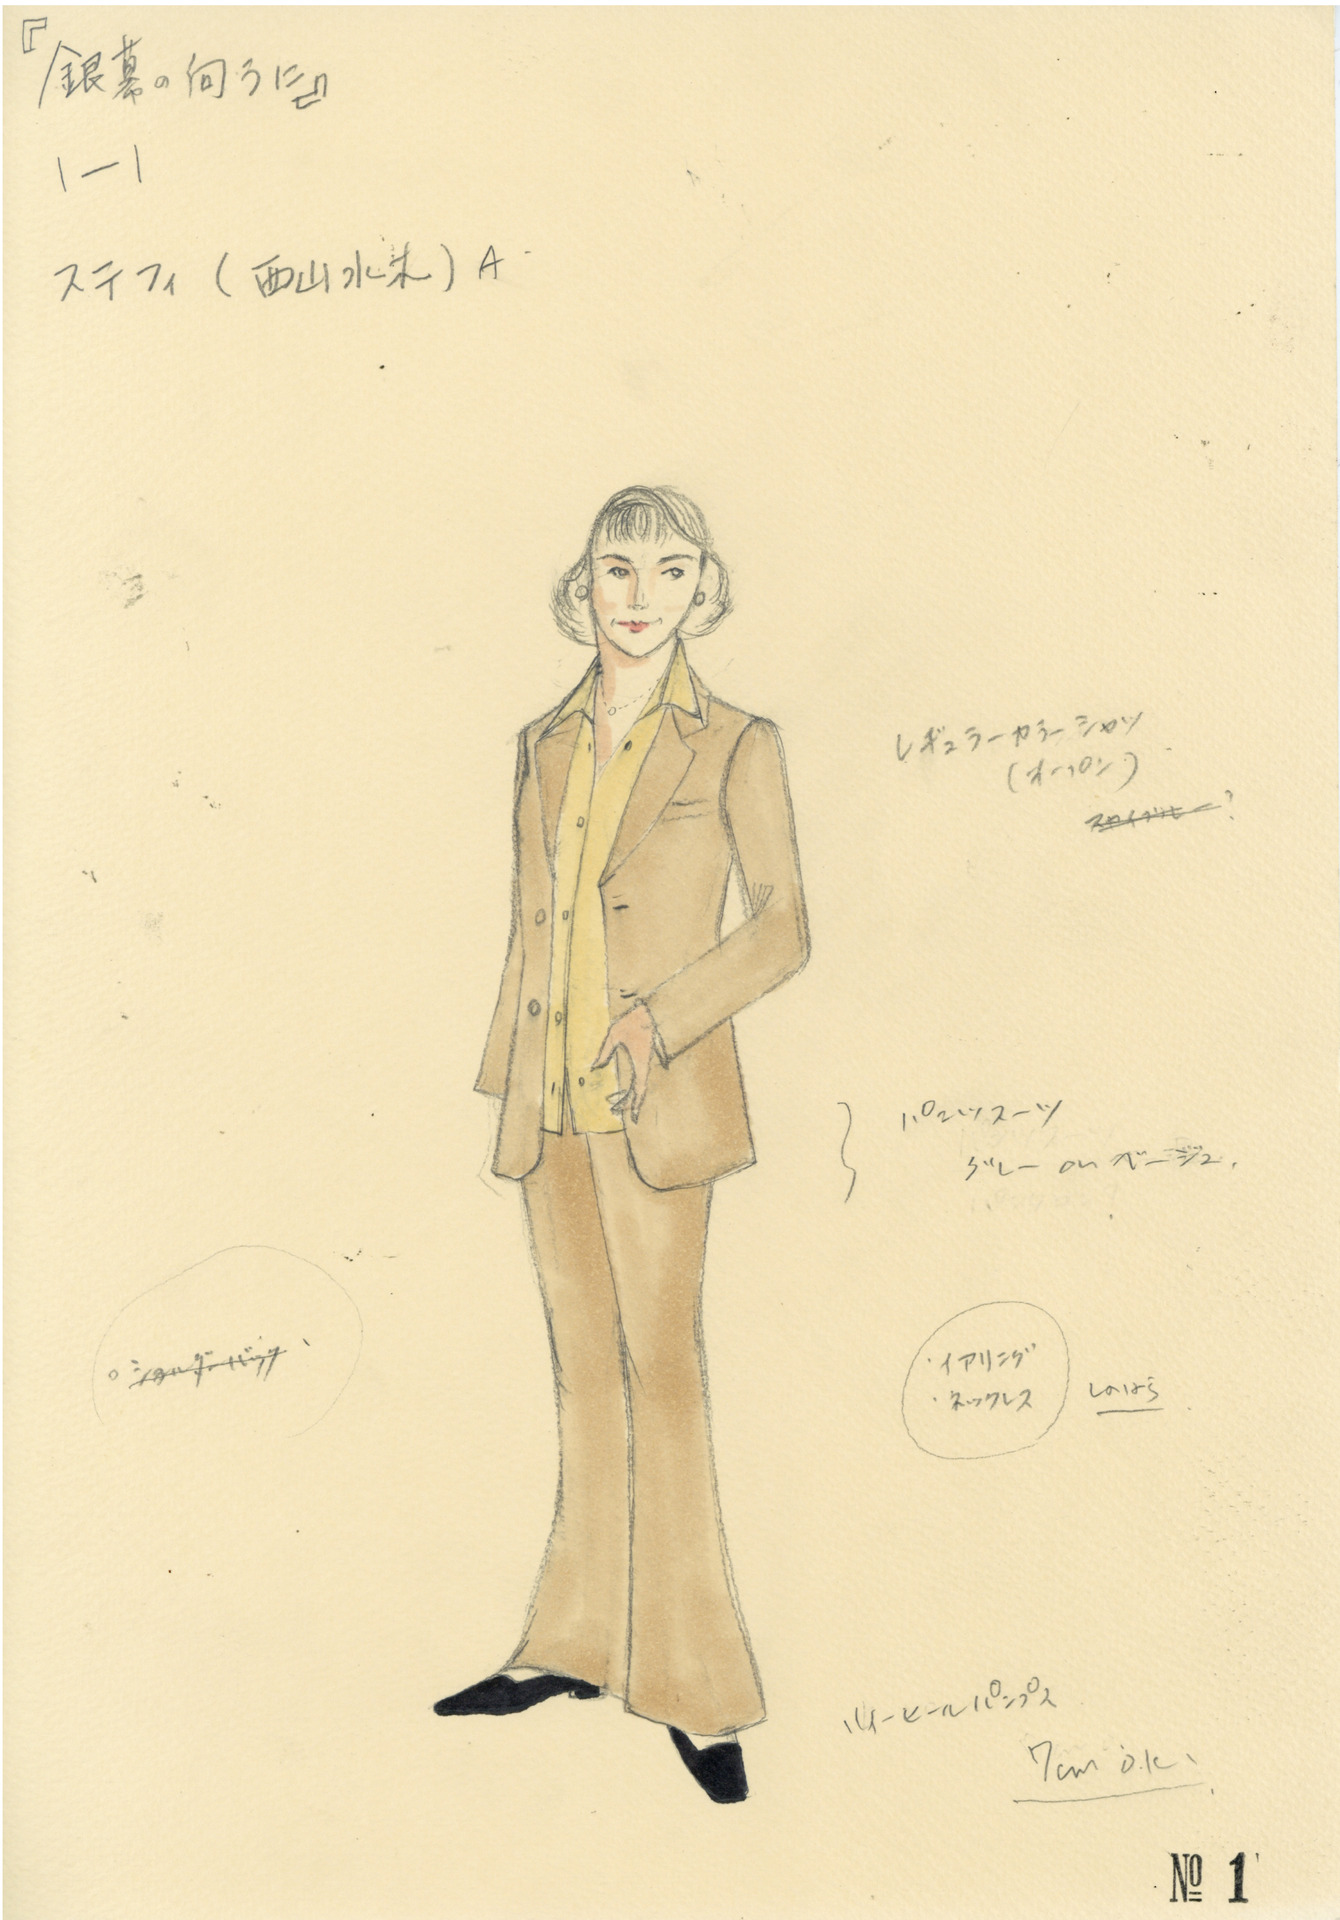 『銀幕の向うに』
1—1
ステフィ(西山水木)A
レギュラーカラーシャツ
(オープン)
?
パンツスーツ
グレー or ベージュ.
ショルダーバッグ
・イアリング
・ネックレス
しのはら
ハイヒールパンプス
7cm o.k.
№ 1